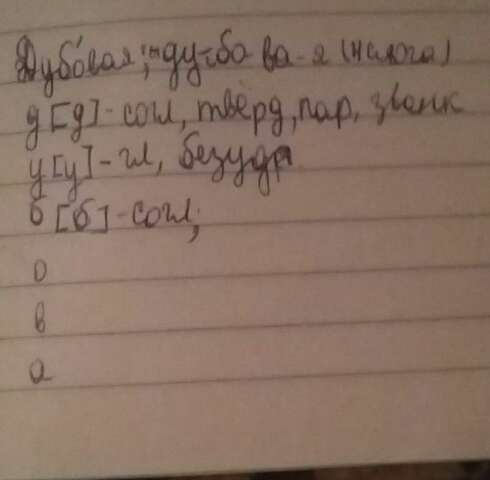 Дубо́вая; ду-бо-ва-я (4 слога)
д [д] - согл, твёрд, пар, звонк
у [у] - гл, безудр
б [б] - согл;
о
в
а